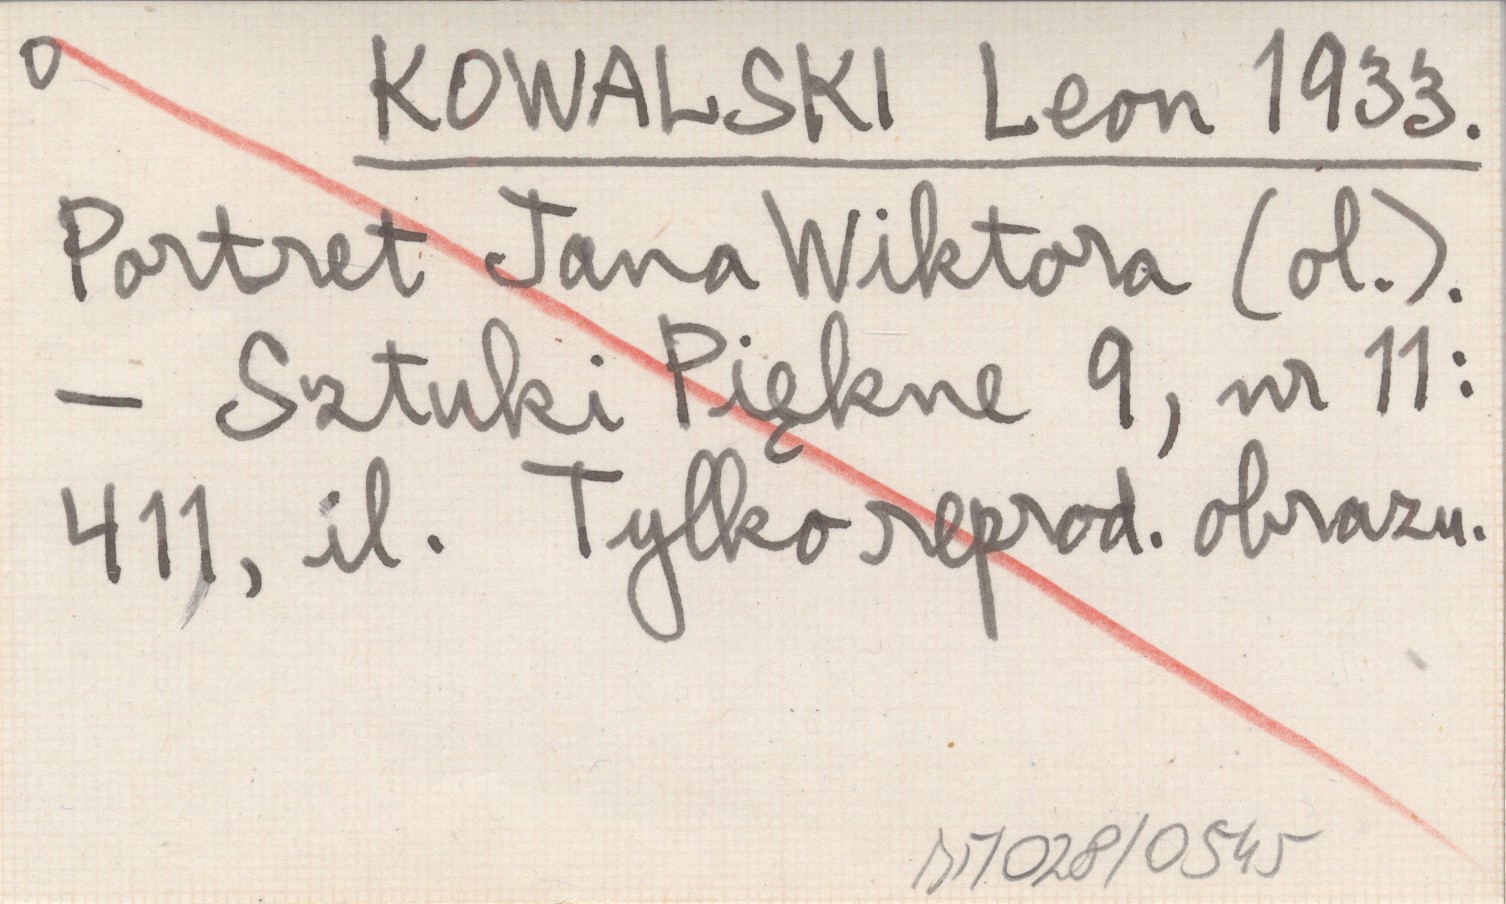 O KOWALSKI Leon 1933.
Portret Jana Wiktora (ol.).
- Sztuki Piękne 9, nr 11:
411, il. Tylko reprod. obrazu.
/028/0545